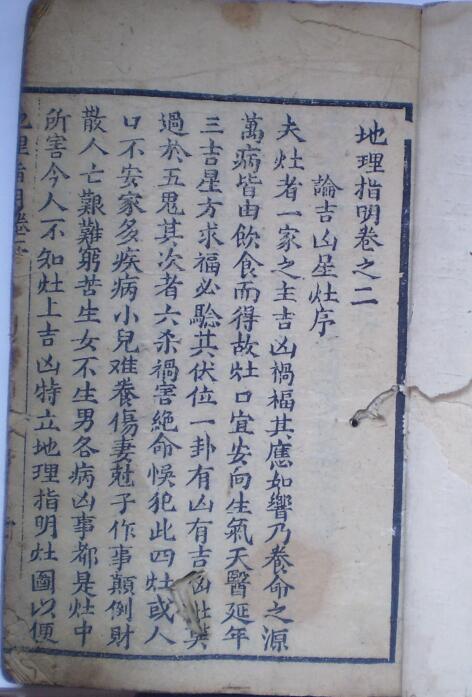 地理指明卷之二
論吉凶星灶序
夫灶者一家之主吉凶禍福其應如響乃養命之源
萬病皆由飲食而得故灶口宜安向生氣天醫延年
三吉星方求福必騐其伏位一卦有凶有吉凶灶莫
過於五鬼其次者六杀禍害絶命悞犯此四灶或人
口不安家多疾病小兒难養傷妻尅子作事顛倒財
散人亡艱難窮苦生女不生男各病凶事都是灶中
所害今人不知灶上吉凶特立地理指明灶圖以便
地理指明卷